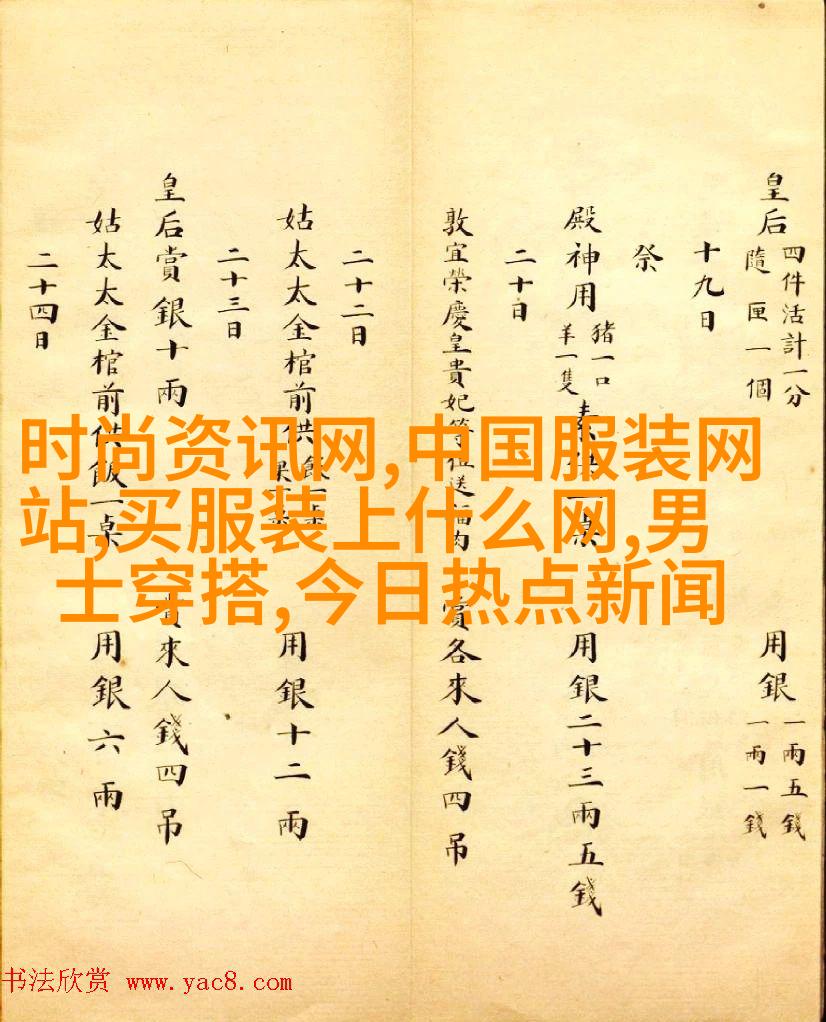 皇后 四件活計一分 隨匣一個 用銀 一兩五錢 一兩一錢
十九日
祭
殿神用 豬一口 羊一隻 素 一桌 用銀二十三兩五錢
二十日
敦宜榮慶皇貴妃等位送福肉 賞各來人錢四吊
二十二日
姑太太金棺前供飯一桌 用銀十二兩
二十三日
皇后賞銀十兩 賞來人錢四吊
姑太太金棺前供飯一桌 用銀六兩
二十四日
时尚资讯网,中国服装网
站,买服装上什么网,男
士穿搭,今日热点新闻
书法欣赏 www.yac8.com